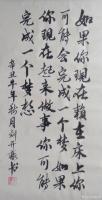 如果你现在赖在床上你
可能会完成一个梦如果
你现在起来做事你可能
完成一个梦想
辛丑年 月刘开 书